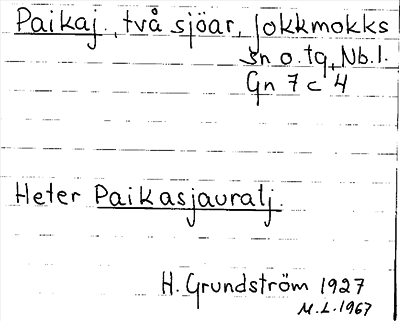 Paikaj, två sjöar, Jokkmokks
sn o. tg, Nb.l.
Gn 7 c 4
Heter Paikasjauratj.
H. Grundström 1927
M.L. 1967